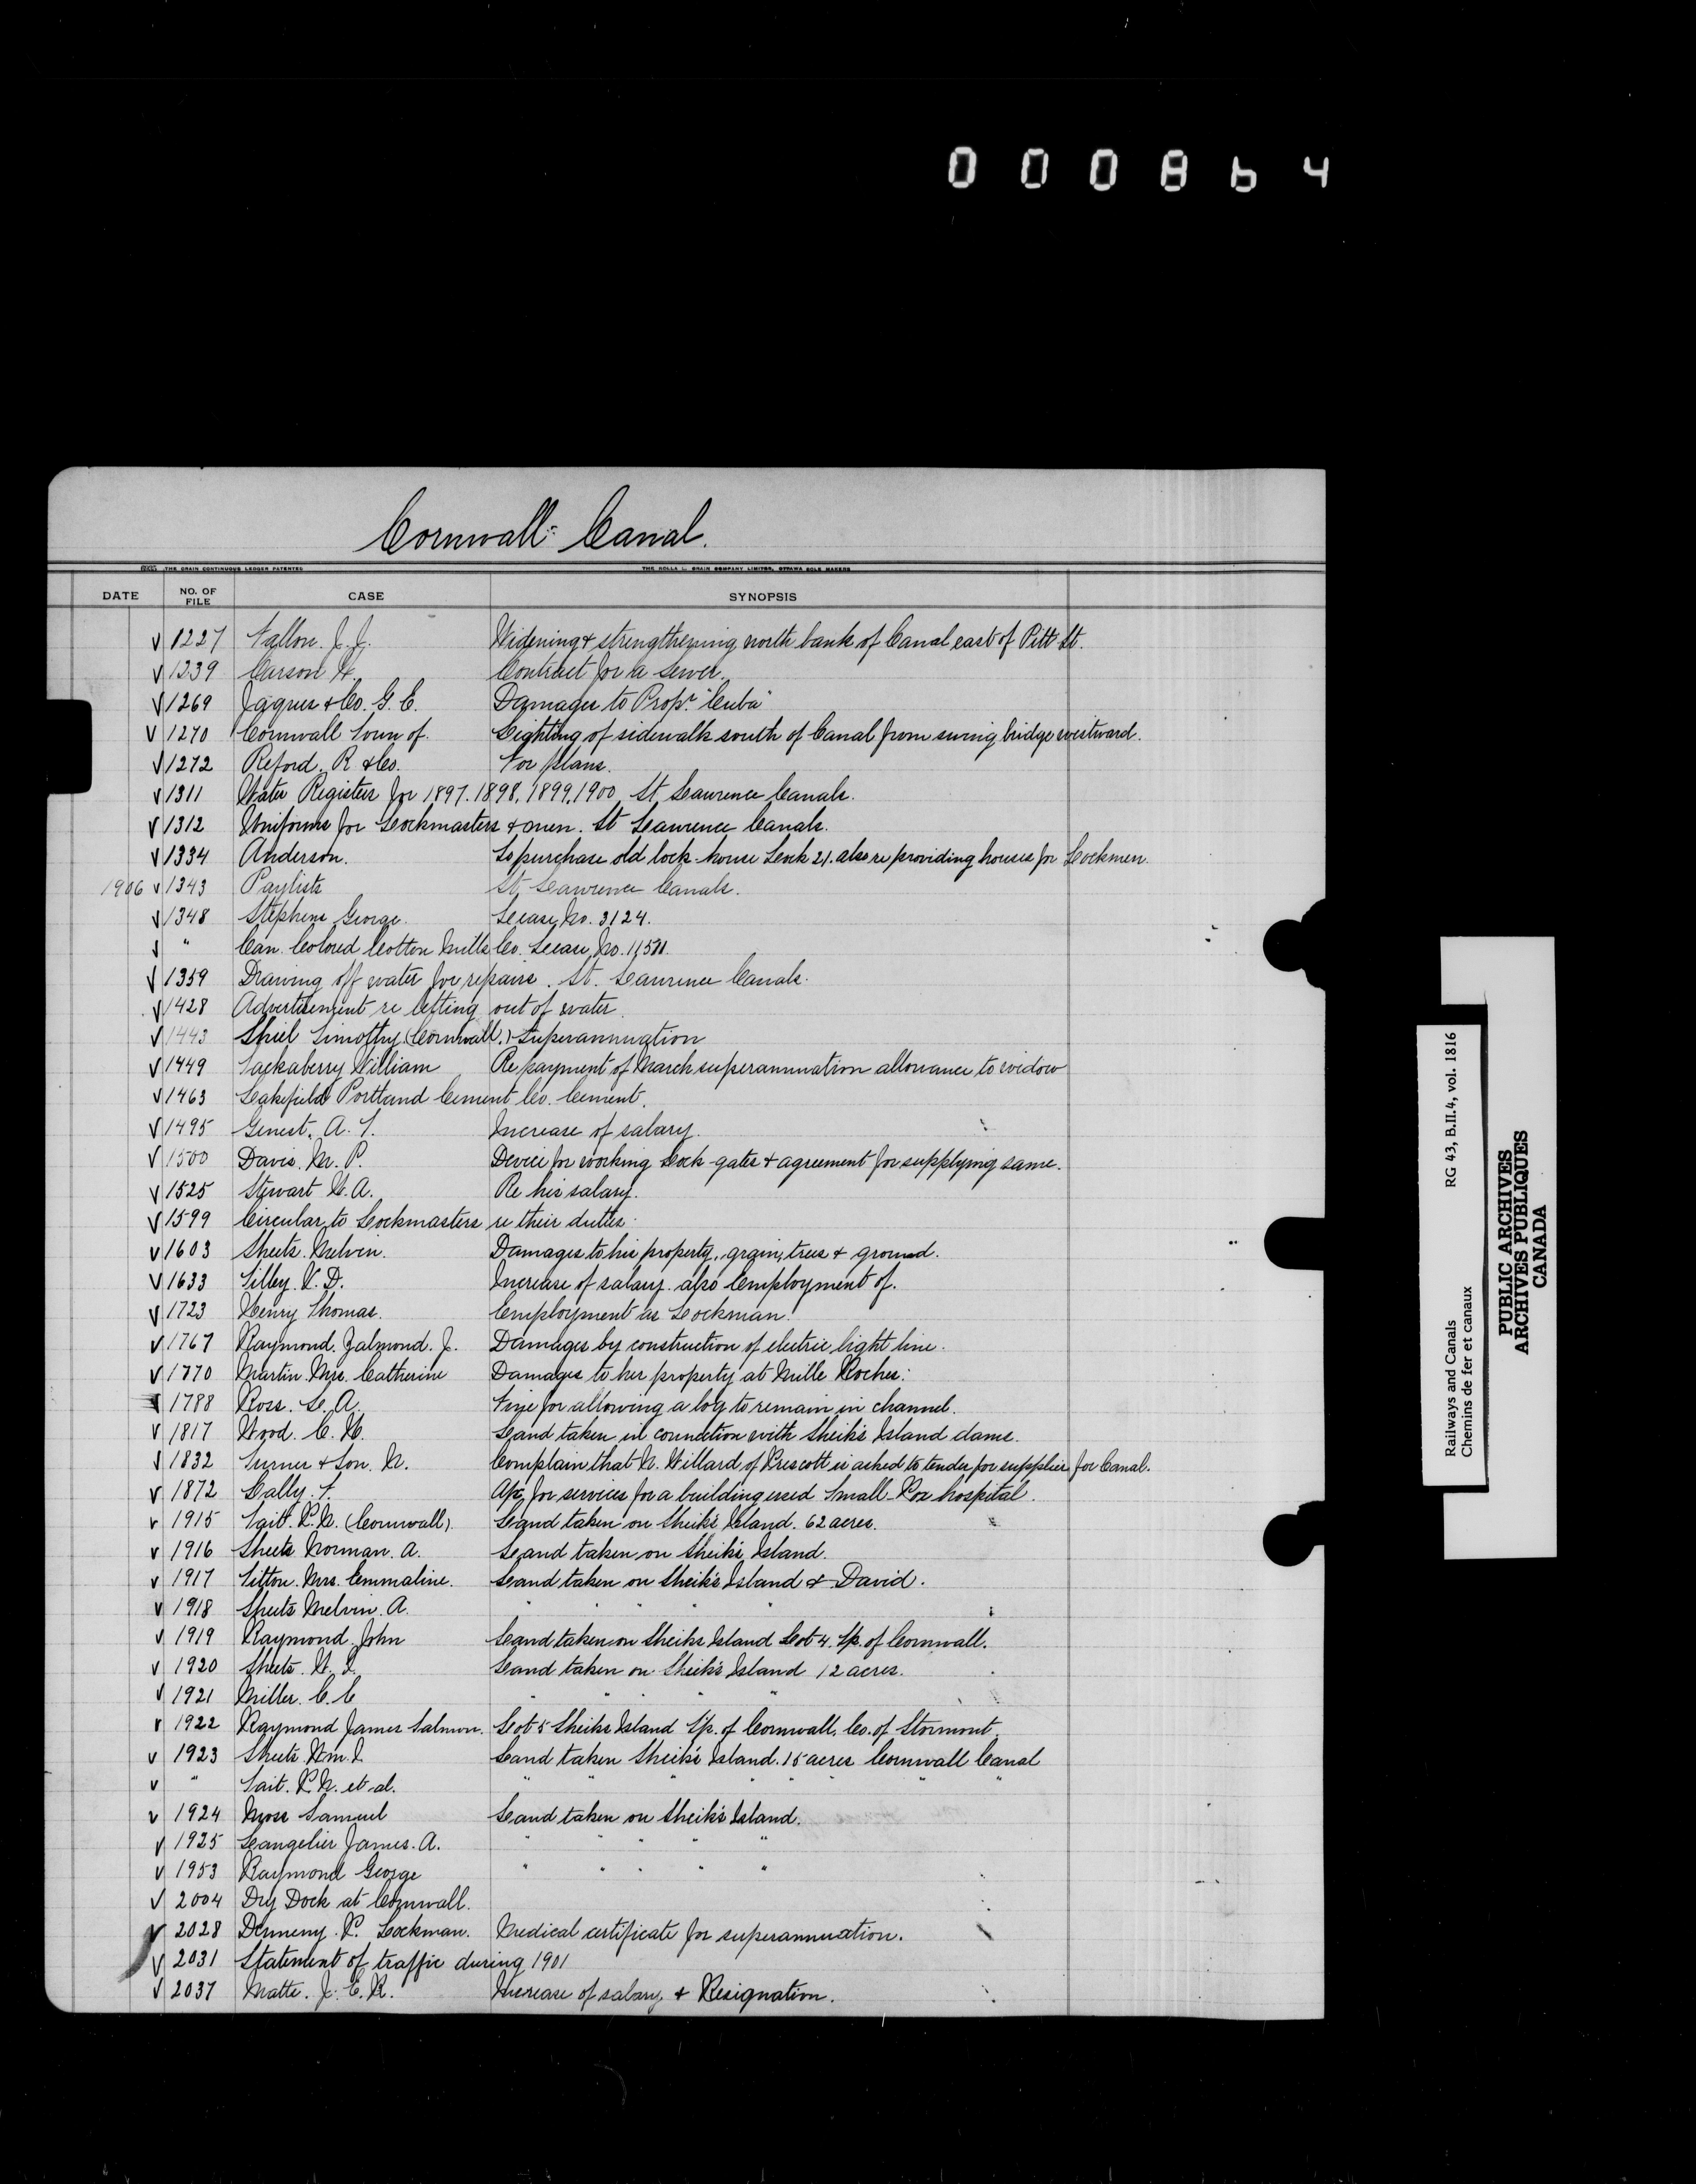 000864
Cornwall Canal.
THE CRAIN CONTINUOUS LEDGER PATENTED THE ROLLA L. CRAIN COMPANY LIMITED, OTTAWA SOLE MAKERS
DATE NO. OF FILE CASE SYNOPSIS
√ 1227 Fallon. J. J. Widening & strengthening north bank of Canal east of Pitt St.
√ 1239 Carson H. Contract for a sewer.
√ 1269 Jaques & Co. G. E. Damages to Propr. "Cuba"
√ 1270 Cornwall Town of. Lighting of sidewalk south of Canal from swing bridge westward.
√ 1272 Reford. R. & Co. For plans.
√ 1311 Water Registers for 1897. 1898, 1899, 1900 St Lawrence Canals.
√ 1312 Uniforms for Lockmasters & men. St Lawrence Canals.
√ 1334 Anderson. To purchase old lock-house Lock 21. also re providing houses for Lockmen.
1906 √ 1343 Paylists St. Lawrence Canals.
√ 1348 Stephens George. Lease No. 3124.
√ " Can. Colored Cotton Mills Co. Lease No.
√ 1359 Drawing off water for repairs. St. Lawrence Canals.
√ 1428 Advertisement re letting out of water.
√ 1443 Shiel Timothy (Cornwall.) Superannuation
√ 1449 Tackaberry William Re payment of March superannuation allowance to widow
√ 1463 Lakefield Portland Cement Co. Cement.
√ 1495 Genest. A. T. Increase of salary.
√ 1500 Davis. M. P. Device for working lock-gates & agreement for supplying same.
√ 1525 Stewart W. A. Re his salary.
√ 1599 Circular to Lockmasters re their duties.
√ 1603 Sheets. Melvin. Damages to his property, grain, trees & ground.
√ 1633 Tilley. V. D. Increase of salary. also Employment of.
√ 1723 Henry Thomas. Employment as Lockman.
√ 1767 Raymond. Zalmond. J. Damages by construction of electric light line.
√ 1770 Martin. Mrs. Catherine Damages to her property at Mille Roches.
√ 1788 Ross. L. A. Fine for allowing a log to remain in channel.
√ 1817 Wood. C. W. Land taken in connection with Sheik's Island dams.
√ 1832 Turner & Son. N. Complain that N. Willard of Prescott is asked to tender for supplies for Canal.
√ 1872 Lally. F. A/c for services for a building used Small-Pox hospital.
√ 1915 Tait. P. N. (Cornwall). Land taken on Sheik's Island. 62 acres.
√ 1916 Sheets Norman. A. Land taken on Sheik's Island.
√ 1917 Sitton. Mrs. Emmaline. Land taken on Sheik's Island & David.
√ 1918 Sheets Melvin. A. " " " "
√ 1919 Raymond. John Land taken on Sheiks Island Lot 4. Tp. of Cornwall.
√ 1920 Sheets. W. I. Land taken on Sheik's Island 12 acres.
√ 1921 Miller. C. C " " " "
√ 1922 Raymond James Salmon. Lot 5 Sheiks Island Tp. of Cornwall, Co. of Stormont.
√ 1923 Sheets. Wm. I. Land taken Sheik's Island. 15 acres Cornwall Canal
√ " Tait. P. N. et al. " " " " " " " "
√ 1924 Moss Samuel Land taken on Sheik's Island.
√ 1925 Langelier James. A. " " " " "
√ 1953 Raymond George " " " " "
√ 2004 Dry Dock at Cornwall.
√ 2028 Denneny. P. Lockman. Medical certificate for superannuation.
√ 2031 Statement of traffic during 1901
√ 2037 Matte. J. E. R. Increase of salary & Resignation.
Railways and Canals RG 43, B.II.4, vol. 1816
Chemins de fer et canaux
PUBLIC ARCHIVES
ARCHIVES PUBLIQUES
CANADA